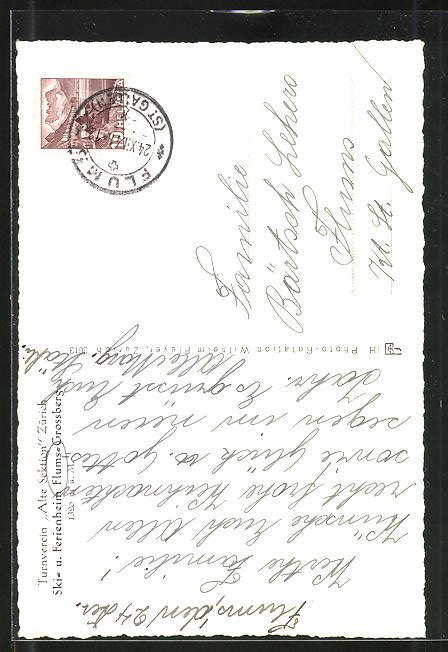 Turnverein „Alte Sektion" Zürich
Ski= u. Ferienheim Flums=Grossberg
1380 m ü. M.
Flums, den 24 Dez.
Werthe Familie!
Wünsche Euch Allen
recht frohe Weihnachten
sowie Glück u. Gottes
segen im neuen
Jahr. Es grüsst Euch
JH Photo-Rotation Wilhelm Pleyer, Zürich 2013
FLUMS
(ST. GALLEN)
24.XII.
Familie
Bärtsch Lehrer
Flums
Kt. St. Gallen